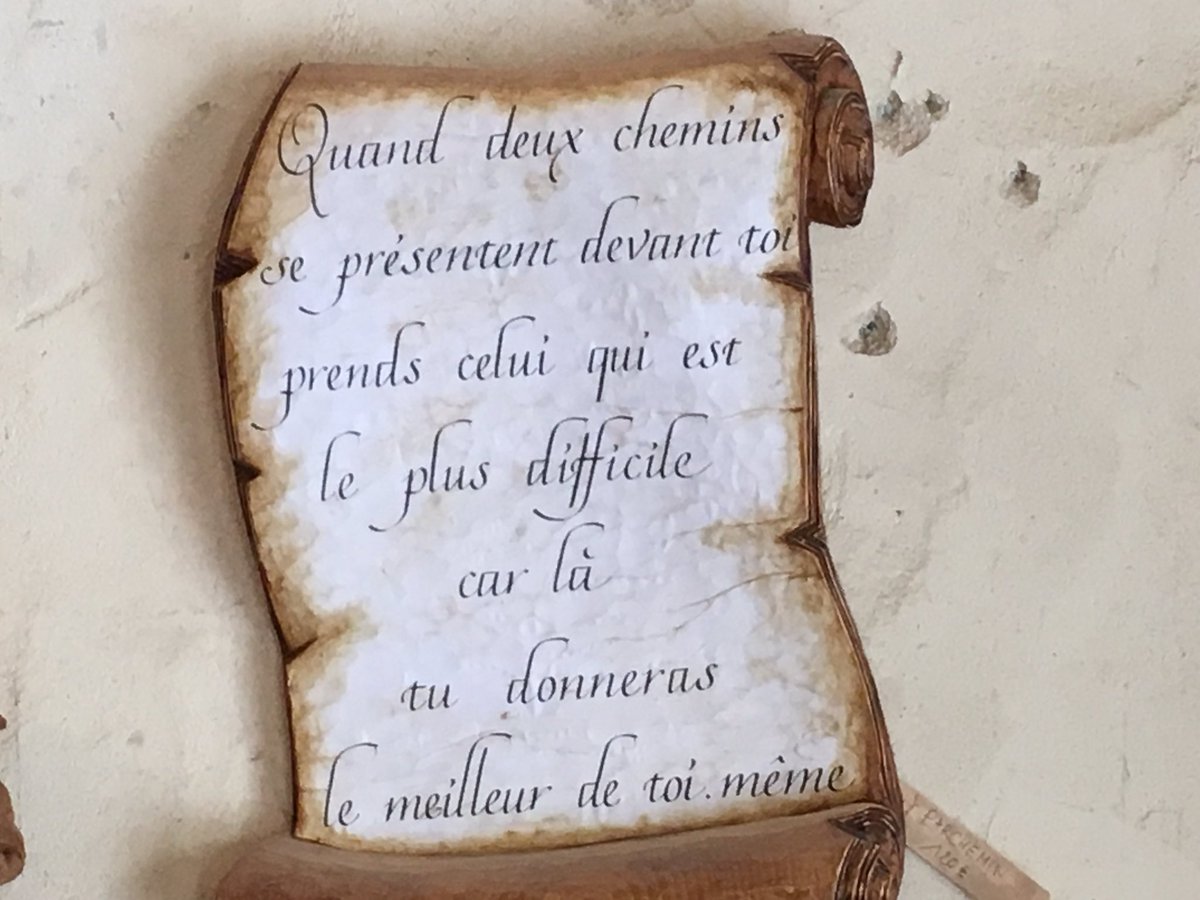 Quand deux chemins
se présentent devant toi
prends celui qui est
le plus difficile
car là
tu donneras
le meilleur de toi.même
PARCHEMIN
120€